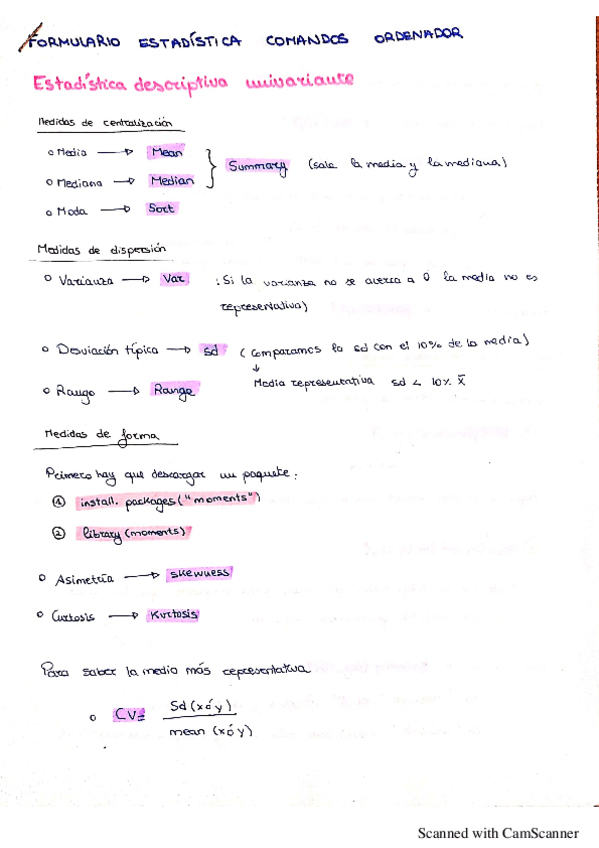 FORMULARIO ESTADÍSTICA COMANDOS ORDENADOR
Estadística descriptiva univariante
Medidas de centralización
o Media → Mean
Summary (sale la media y la mediana)
o Mediana → Median
o Moda → Sort
Medidas de dispersión
o Varianza → Var : Si la varianza no se acerca a 0 la media no es
representativa)
o Desviación típica → sd (Comparamos la sd con el 10% de la media)
↓
Media representativa sd < 10% x̄
o Rango → Range
Medidas de forma
Primero hay que descargar un paquete:
① install.packages("moments")
② library(moments)
o Asimetría → skewness
o Curtosis → Kurtosis
Para saber la media más representativa
o CV= Sd(xóy)
mean (xóy)
Scanned with CamScanner